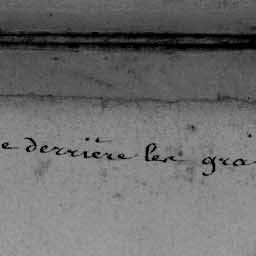 e derriere les gra